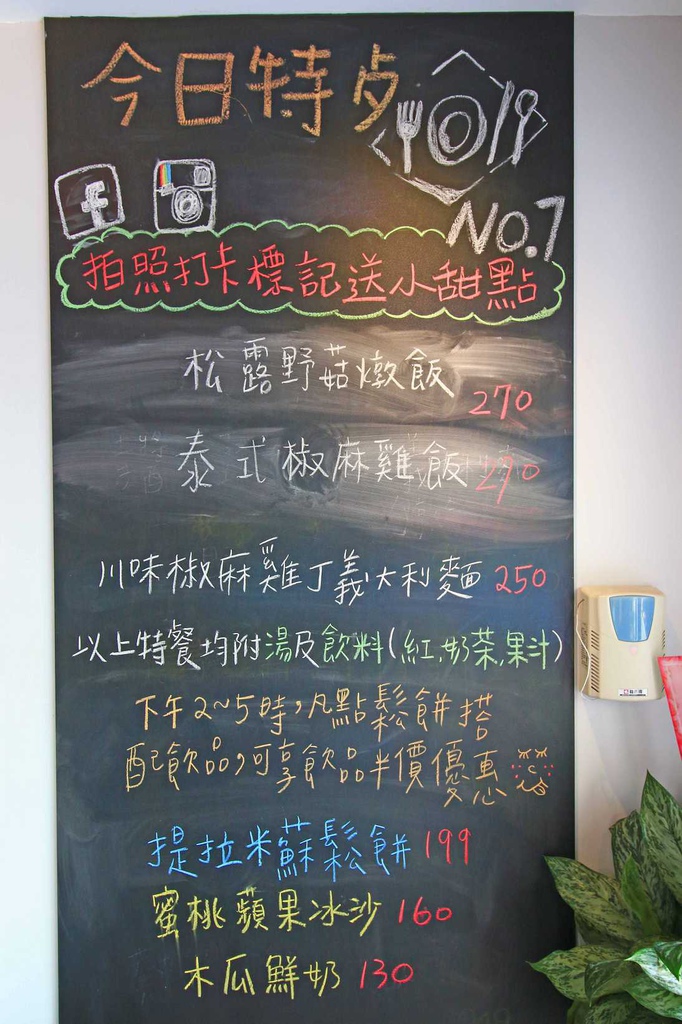 今日特歺
NO.7
f
拍照打卡標記送小甜點
松露野菇燉飯 270
泰式椒麻雞飯 290
川味椒麻雞丁義大利麵 250
以上特餐均附湯及飲料(紅.奶茶.果汁)
下午2~5時,凡點鬆餅搭
配飲品,可享飲品半價優惠
提拉米蘇鬆餅 199
蜜桃蘋果冰沙 160
木瓜鮮奶 130